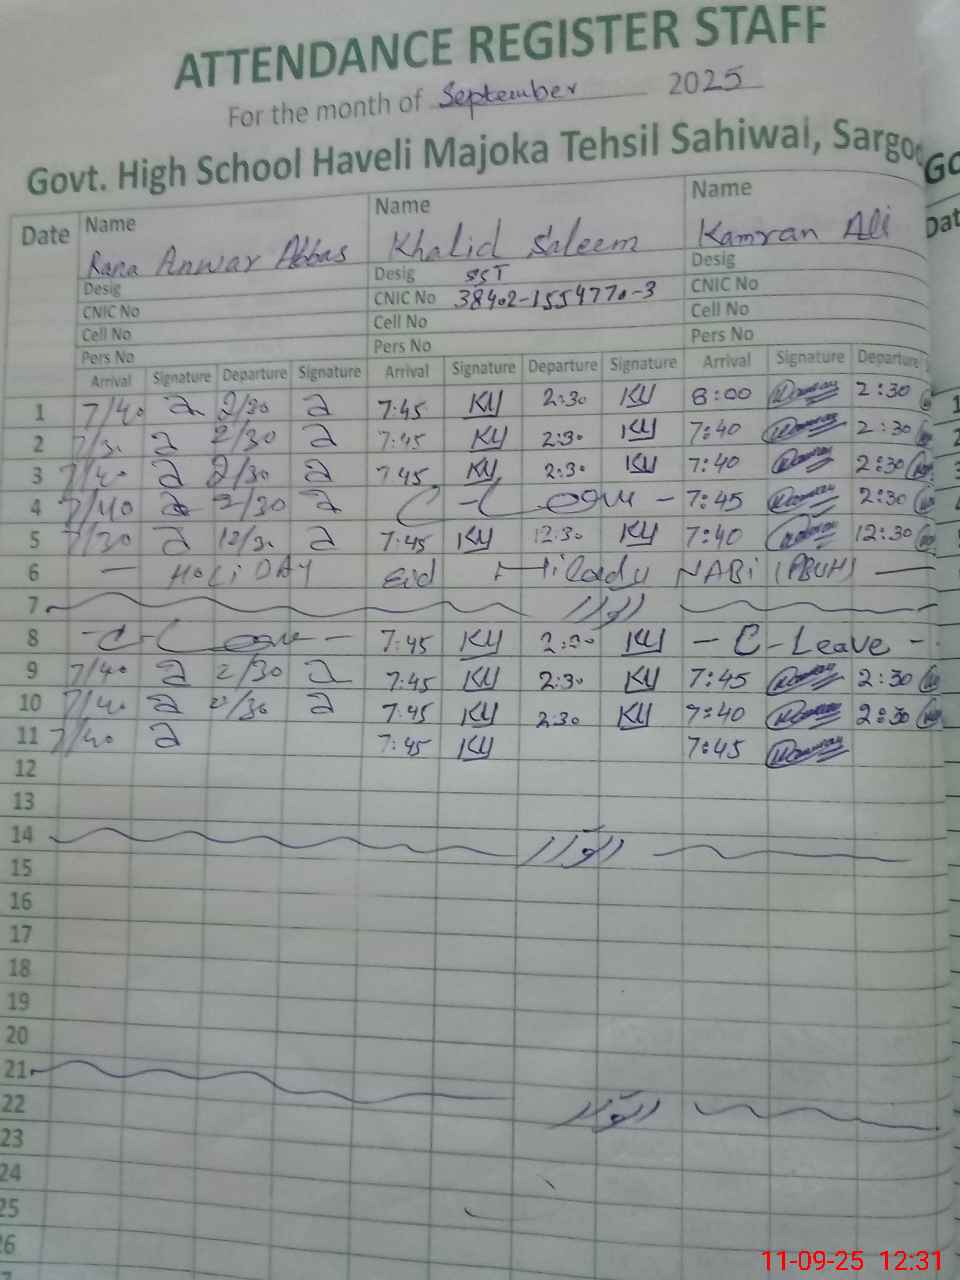 ATTENDANCE REGISTER STAFF
For the month of September 2025
Govt. High School Haveli Majoka Tehsil Sahiwal, Sargo
Date Name Name Name
Rana Anwar Abbas Khalid Saleem Kamran Ali
Desig Desig SST Desig
CNIC No CNIC No 38402-1554770-3 CNIC No
Cell No Cell No Cell No
Pers No Pers No Pers No
Arrival Signature Departure Signature Arrival Signature Departure Signature Arrival Signature Departure
1 7/40 2/30 7:45 KY 2:30 KY 8:00 2:30
2 7/30 2/30 7:45 KY 2:30 KY 7:40 2:30
3 7/40 2/30 7 45 KY 2:30 KY 7:40 2:30
4 7/40 2/30 C - L 7:45 2:30
5 7/30 12/30 7:45 KY 12:30 KY 7:40 12:30
6 — HOLiDAY Eid NABi (PBUH) —
7 اتوار
8 - C - L 7:45 KY 2:30 KY - C - Leave -
9 7/40 2/30 7:45 KY 2:30 KY 7:45 2:30
10 7/40 2/30 7:45 KY 2:30 KY 7:40 2:30
11 7/40 7:45 KY 7:45
12
13
14 اتوار
15
16
17
18
19
20
21 اتوار
22
23
24
25
26
11-09-25 12:31